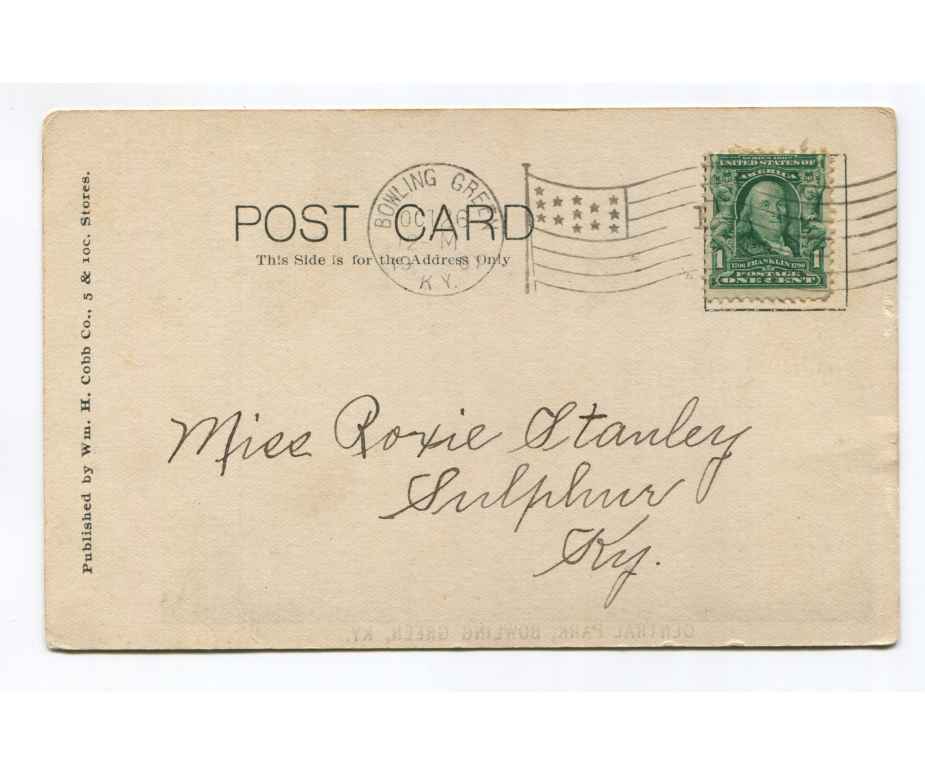 Published by Wm. H. Cobb Co., 5 & 10c. Stores.
POST CARD
This Side is for the Address Only
BOWLING GREEN
OCT 6
KY.
UNITED STATES OF
AMERICA
1 FRANKLIN 1
POSTAGE
ONE CENT
Miss Roxie Stanley
Sulphur
Ky.
CENTRAL PARK, BOWLING GREEN, KY.